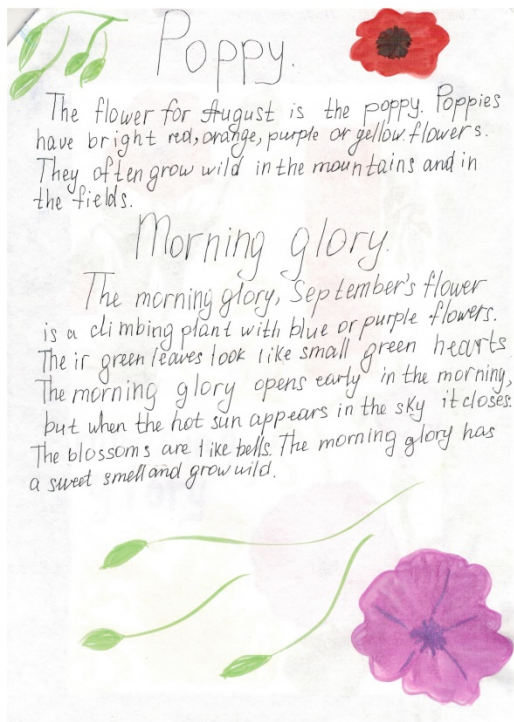 Poppy.
The flower for August is the poppy. Poppies
have bright red, orange, purple or yellow flowers.
They often grow wild in the mountains and in
the fields.
Morning glory.
The morning glory, September's flower
is a climbing plant with blue or purple flowers.
The ir green leaves look like small green hearts
The morning glory opens early in the morning,
but when the hot sun appears in the sky it closes.
The blossoms are like bells. The morning glory has
a sweet smell and grow wild.